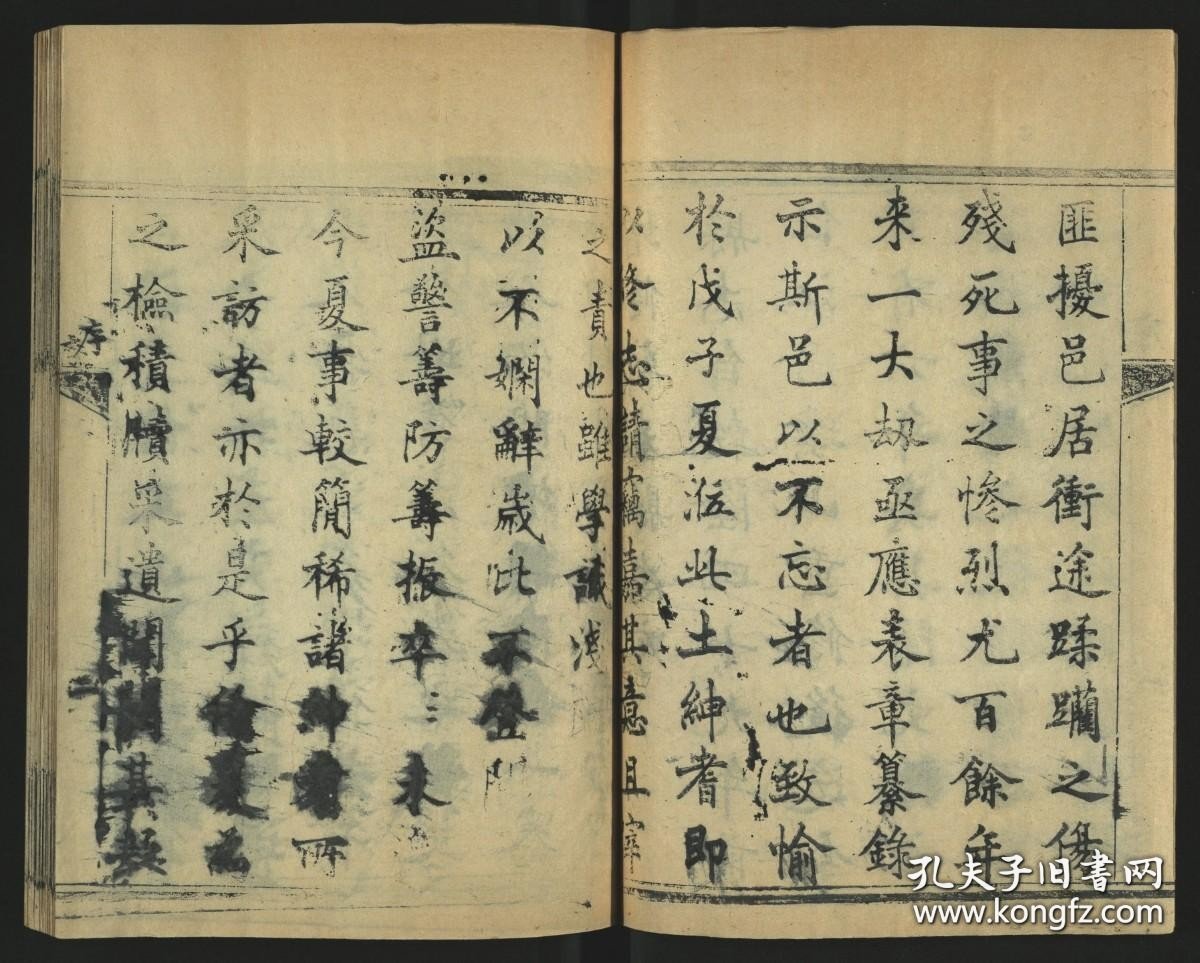 匪擾邑居衝途蹂躪之傷
殘死事之慘烈尤百餘年
来一大劫亟應表章纂錄
示斯邑以不忘者也致愉
於戊子夏涖此土紳耆即
以修志請竊嘉其意且寧
之責也雖學識淺
以不嫻辭歲比不登
盜警籌防籌振卒〻未
今夏事較簡稀諸紳耆所
采訪者亦於是乎
之檢積牘采遺聞
序
孔夫子旧书网
www.kongfz.com